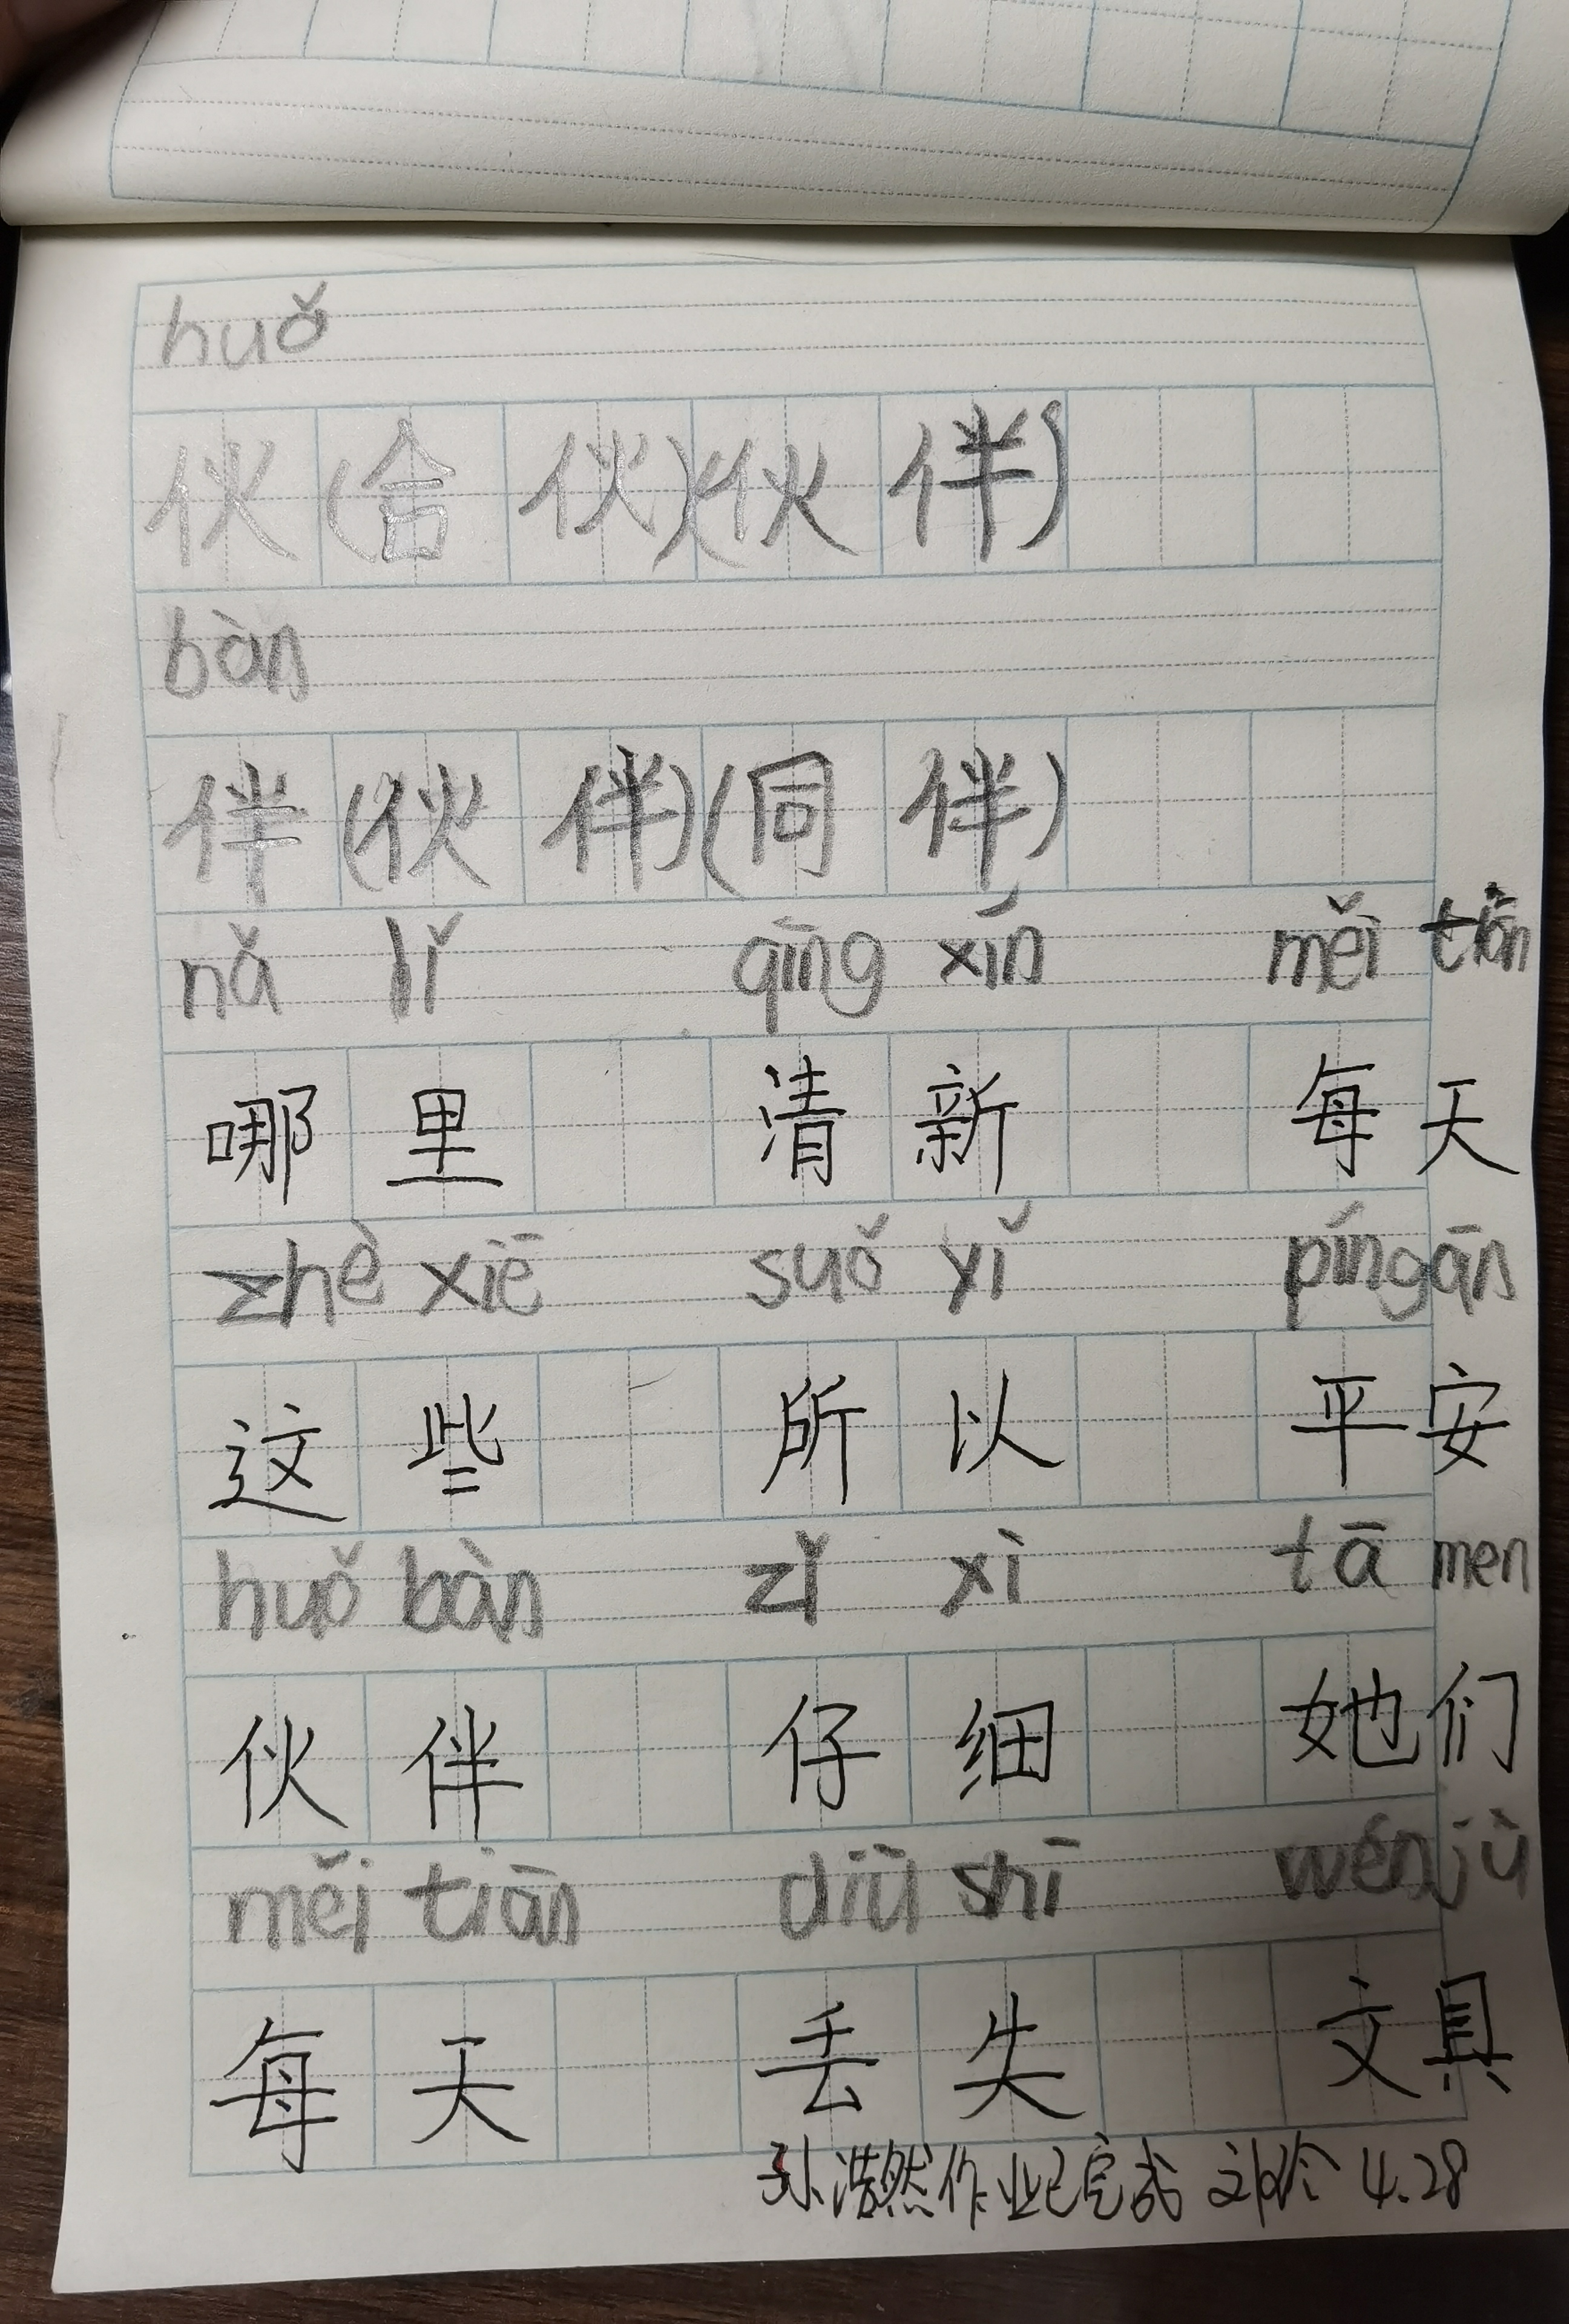 huǒ
伙(合伙)(伙伴)
bàn
伴(伙伴)(同伴)
nǎ lǐ qīng xín měi tiān
哪里 清新 每天
zhè xiē suǒ yǐ píng ān
这些 所以 平安
huǒ bàn zǐ xì tā men
伙伴 仔细 她们
měi tiān diū shī wén jù
每天 丢失 文具
孙浩然作业已完成 刘玲 4.28